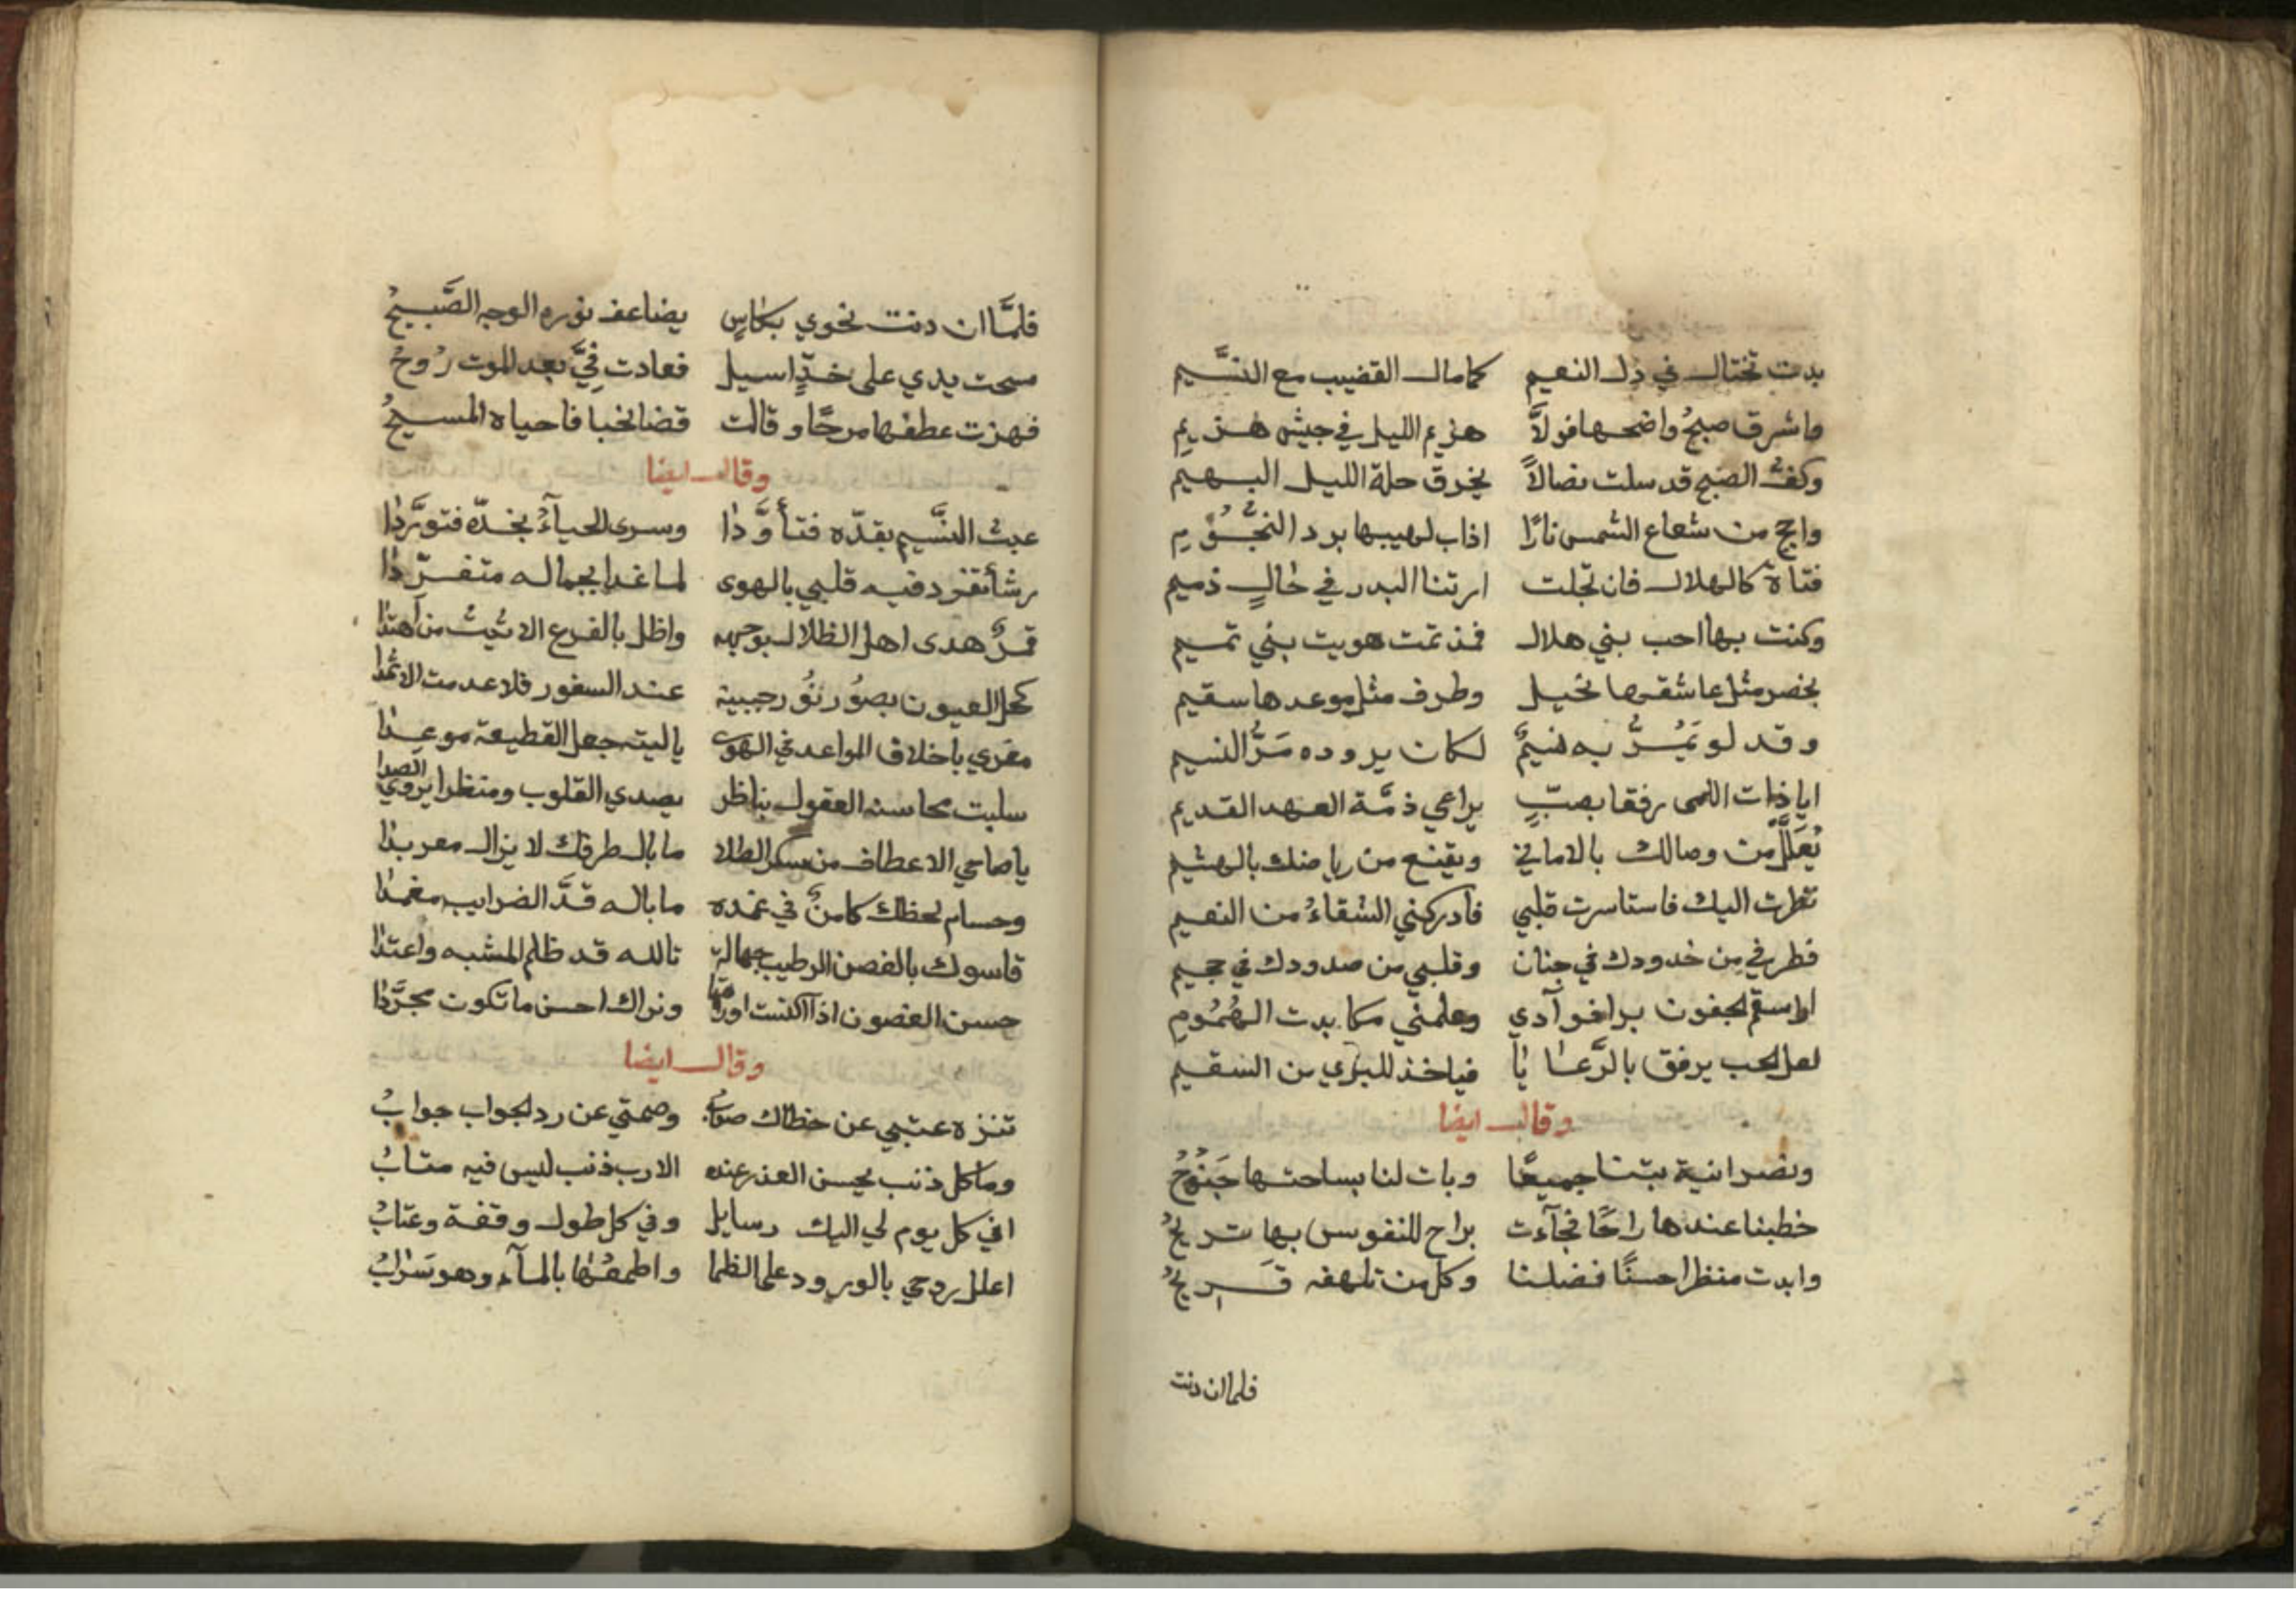 بدت تختال في ذل النعيم كما مال القضيب مع النسَّيم
واشرق صبحُ واضحها فولاَّ هزيم الليل في جيش هزيم
وكفُّ الصبح قد سلت نصالاً يخرق حلة الليل البهيم
واجج من شعاع الشمس نارًا اذاب لهيبها برد النجُّوُم
فتاة كالهلال فان تجلت ارتنا البدر في حالٍ ذميم
وكنت بها احب بني هلال فمذ تمت هويت بني تميم
بخصر مثل عاشقها نخيل وطرف مثل موعدها سقيم
وقد لو يَمُرُّ به نسيمٌ لكان يروده مَرُّ النسيم
ايا ذات اللمى رفقا بصبٍّ يراعي ذمَّة العهد القديم
يُعَلَّلُ من وصالك بالاماني ويقنع من رياضك بالهشيم
نظرت اليك فاستاسرت قلبي فادركني الشقاءُ من النعيم
فطرفي من خدودك في جنان وقلبي من صدودك في جحيم
ارا سقم الجفون برا فوآدي وعلمني مكابدت الهُمُومِ
لعل الحب يرفق بالرَّعايا فياخذ للبري من السقيم
وقال ايضا
ونصرانية بتنا جميعًا وبات لنا بساحتها جَنُوُحُ
خطبنا عندها راحًا فجآءت براح للنفوس بها تريحُ
وابدت منظرا حسنًا فضلنا وكل من تلهفه قَرِيحُ
فلما ان دنت
فلمَّا ان دنت نحوي بكاسٍ يضاعف نوره الوجه الصَّبيحُ
مسحت يدي على خدٍّ اسيل فعادت فيَّ بعد الموت رُوحُ
فهزت عطفها مرحًا وقالت قضا نخبا فاحياه المسيحُ
وقال ايضا
عبث النسَّيم بقدّه فتأوَّدا وسرى الحيآءُ بخدّه فتورَّدا
رشأ تفرد فيه قلبي بالهوى لما غدا بجماله متفرّدا
قمرٌ هدى اهل الظلال بوجهه واظل بالفرع الاثيث من اهتدا
كحل العيون بصوُر نوُر جبينه عند السفور فلا عدمت الاثمدا
مغرى باخلاف المواعد في الهوى ياليته جعل القطيعة موعدا
سلبت محاسنه العقول بناظر يصدي القلوب ومنظر يروي الصدا
يا صاحي الاعطاف من سكر الطلا ما بال طرفك لا يزال معربدا
وحسام لحظك كامنٌ في غمده ما باله قدَّ الضرايب مغمدا
قاسوك بالغصن الرطيب جهالة تالله قد ظلم المشبه واعتدا
حسن الغصون اذا اكتست اوراقها ونراك احسن ما تكون مجرَّدا
وقال ايضا
تنزه عتبي عن خطاك صوابُ وصمتي عن رد الجواب جوابُ
وما كل ذنب يحسن العذر عنده الا رب ذنب ليس فيه متابُ
افي كل يوم لي اليك رسايل وفي كل طول وقفة وعتابُ
اعلل روحي بالورود على الظما واطمعُها بالمآء وهو سَرابُ